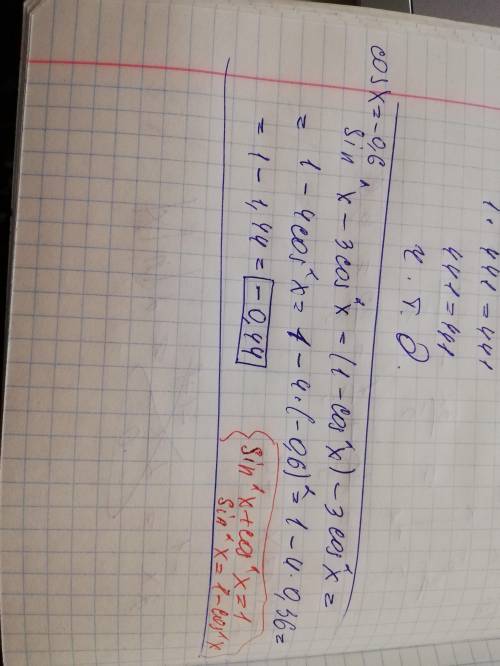 1·441=441
441=441
ч.т.д.
cos x = -0,6
sin²x - 3cos²x = (1-cos²x) - 3cos²x =
= 1 - 4cos²x = 1 - 4·(-0,6)² = 1 - 4·0,36 =
= 1 - 1,44 = -0,44
sin²x + cos²x = 1
sin²x = 1 - cos²x